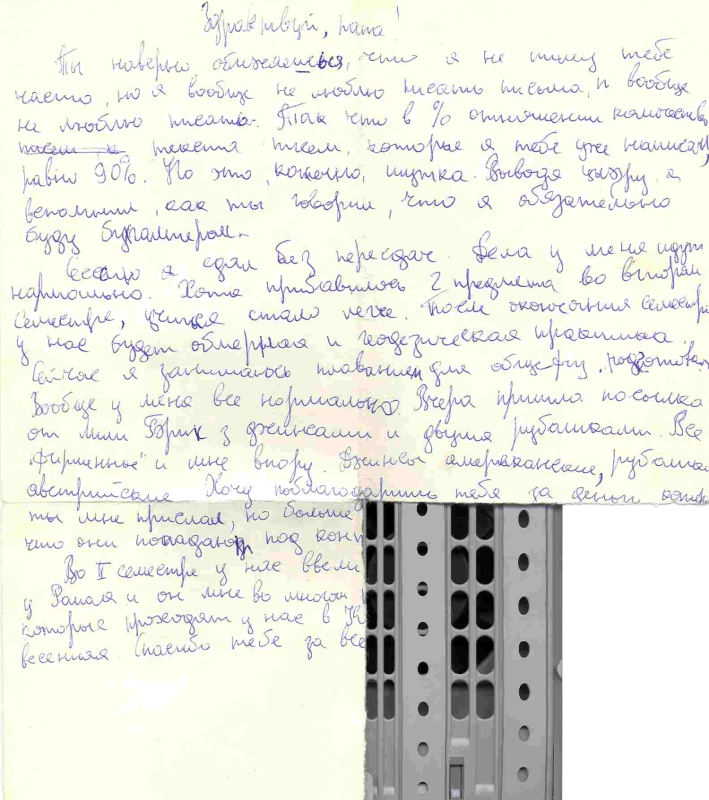 Здравствуй, папа!
Ты наверно обижаешься, что я не пишу тебе
часто, но я вообще не люблю писать письма, и вообще
не люблю писать. Так что в % отношении количество
писем и текста писем, которые я тебе уже написал,
равно 90%. Но это, конечно, шутка. Выводя цифру я
вспомнил, как ты говорил, что я обязательно
буду бухгалтером.
Сессию я сдал без пересдач. Дела у меня идут
нормально. Хотя прибавилось 2 предмета во втором
семестре, учиться стало легче. После окончания семестра
у нас будет обмерная и геодезическая практика.
Сейчас я занимаюсь плаванием для общефиз. подготовки
Вообще у меня все нормально. Вчера пришла посылка
от мили Бэрик з джинсами и двумя рубашками. Все
"фирменное" и мне впору. Джинсы американские, рубашки
австрийские Хочу поблагодарить тебя за деньги
ты мне прислал, но больше
что они попадают под
Во II семестре у нас ввели
у Рамаля и он мне во многом
которые проходят у нас в
весенняя Спасибо тебе за все